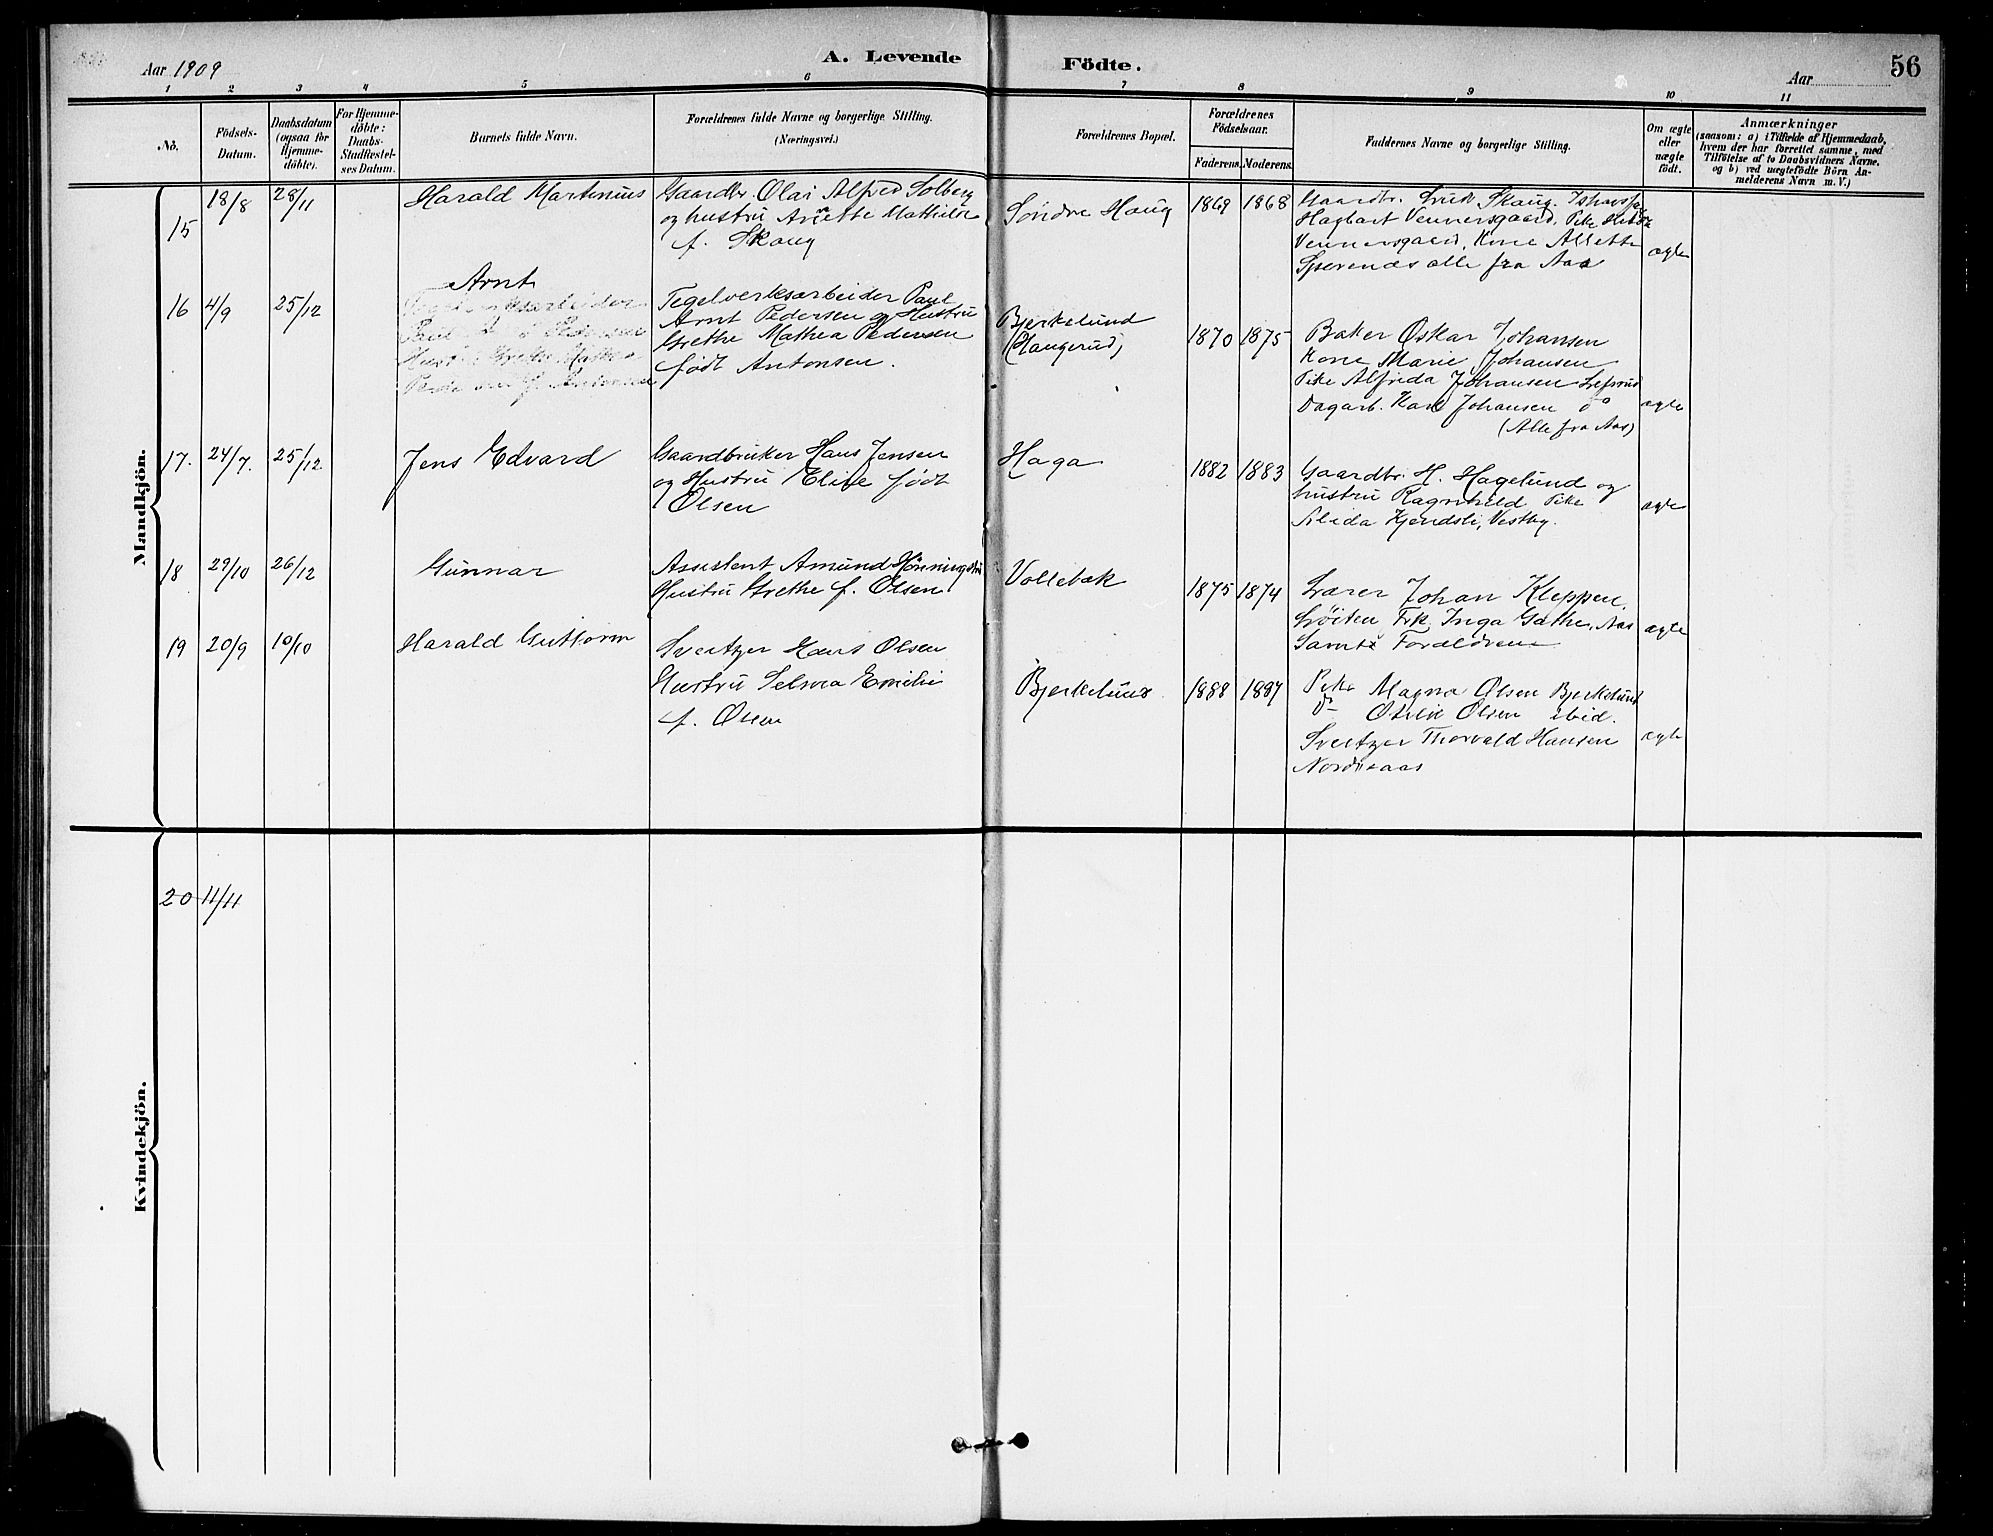 Aar 1909
A. Levende Födte.
Aar
56
1 2 3 4 5 6 7 8 9 10 11
No.
Födsels-Datum.
Daabsdatum (ogsaa for Hjemmedöbte).
For Hjemmedöbte: Daabs-Stadfestelses Datum.
Barnets fulde Navn.
Forældrenes fulde Navne og borgerlige Stilling.
(Næringsvei.)
Forældrenes Bopæl.
Forældrenes Födselsaar.
Faderens. Moderens.
Faddernes Navne og borgerlige Stilling.
Om ægte eller uægte födt.
Anmærkninger
(saasom: a) i Tilfælde af Hjemmedaab,
hvem der har forrettet samme, med
Tilföielse af to Daabsvidners Navne,
og b) ved uægtefödte Börn An-
melderens Navn m. V.)
Mandkjön.
15 18/8 28/11 Harald Martinius
Gaardbr. Olai Alfred Solberg
og hustru Anette Mathilde
f. Skaug
Søndre Haug 1869 1868
Gaardbr. Erik Skaug.
Hagbart Vennersgaard, Pike
Vennersgaard, Kone Allette
alle fra Aas
ægte
16 4/9 25/12 Arnt
Tegelverksarbeider Paul
Arnt Pedersen og Hustru
Grethe Mathea Pedersen
født Antonsen.
Bjerkelund
(Haugerud)
1870 1875
Baker Oskar Johansen
Kone Marie Johansen
Pike Alfrida Johansen
Dagarb. Karl Johansen do
(Alle fra Aas)
ægte
17. 24/7. 25/12 Jens Edvard
Gaardbruker Hans Jensen
og Hustru Elise født
Olsen
Haga 1882 1883
Gaardbr. H. Hagelund og
hustru Ragnhild Pike
Alida Kjendsli, Vestby.
ægte
18 29/10 26/12 Gunnar
Assistent Amund
Hustru Grethe f. Olsen
Vollebæk 1875 1874
Lærer Johan Kleppen,
Frk. Inga Gathe, Aas
Samt Forældrene
ægte
19 20/9 10/10 Harald Guttorm
Sveitzer Hans Olsen
Hustru Selma Emilie
f. Olsen
Bjerkelund 1888 1887
Pike Magna Olsen Bjerkelund
do Otilie Olsen ibid.
Sveitzer Thorvald Hansen
Nordreaas
ægte
Kvindekjön.
20 11/11